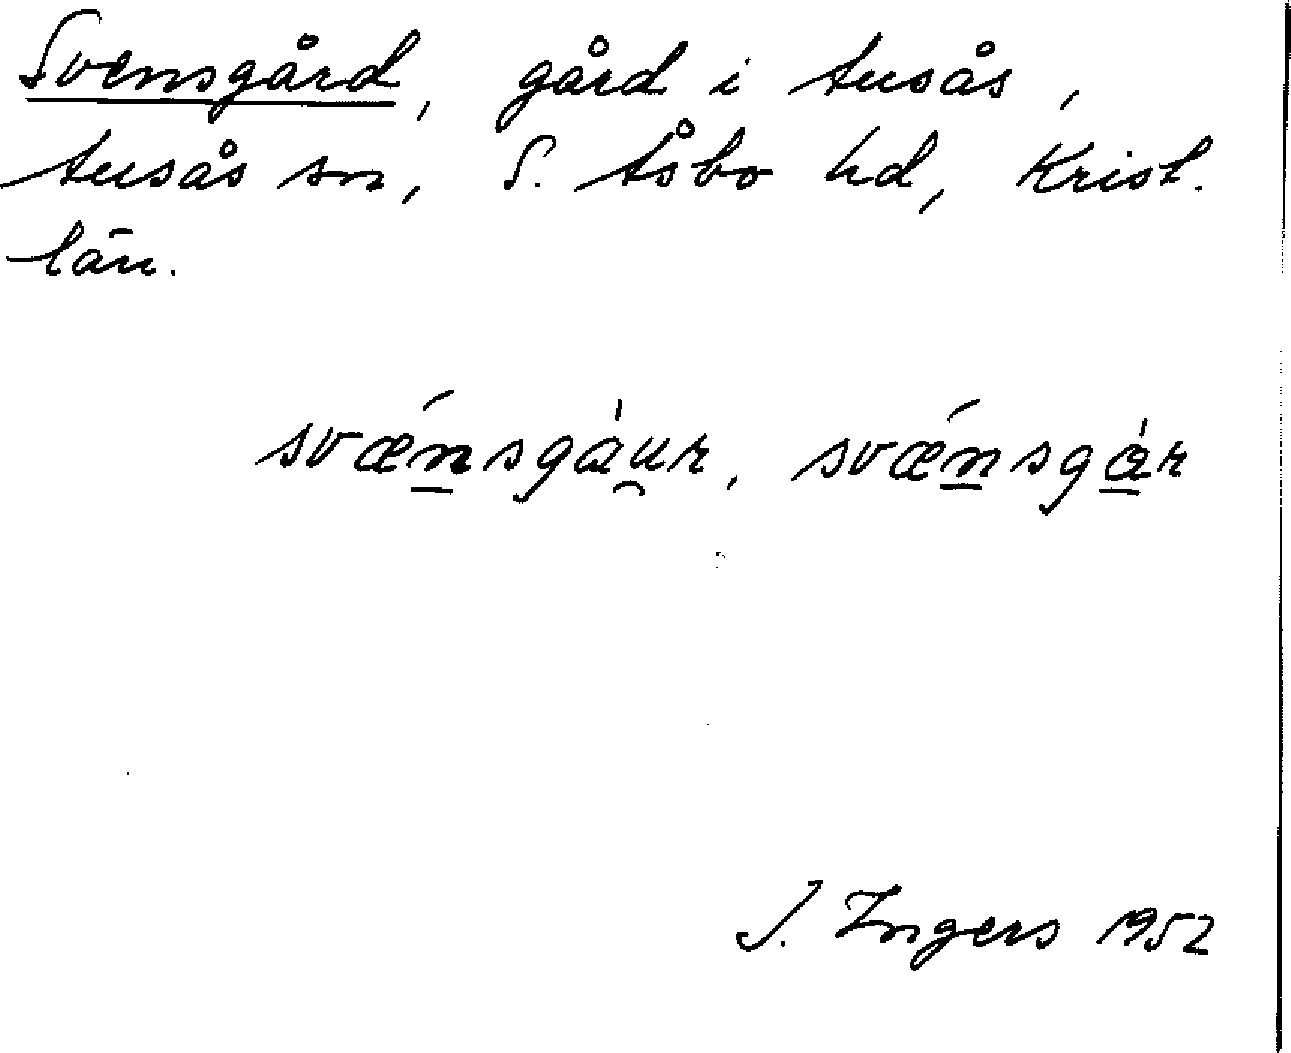 Svensgård, gård i Ausås,
Ausås sn, S. Åsbo hd, Krist.
län.
svǽnsgáur, svǽnsgár
I. Ingers 1952